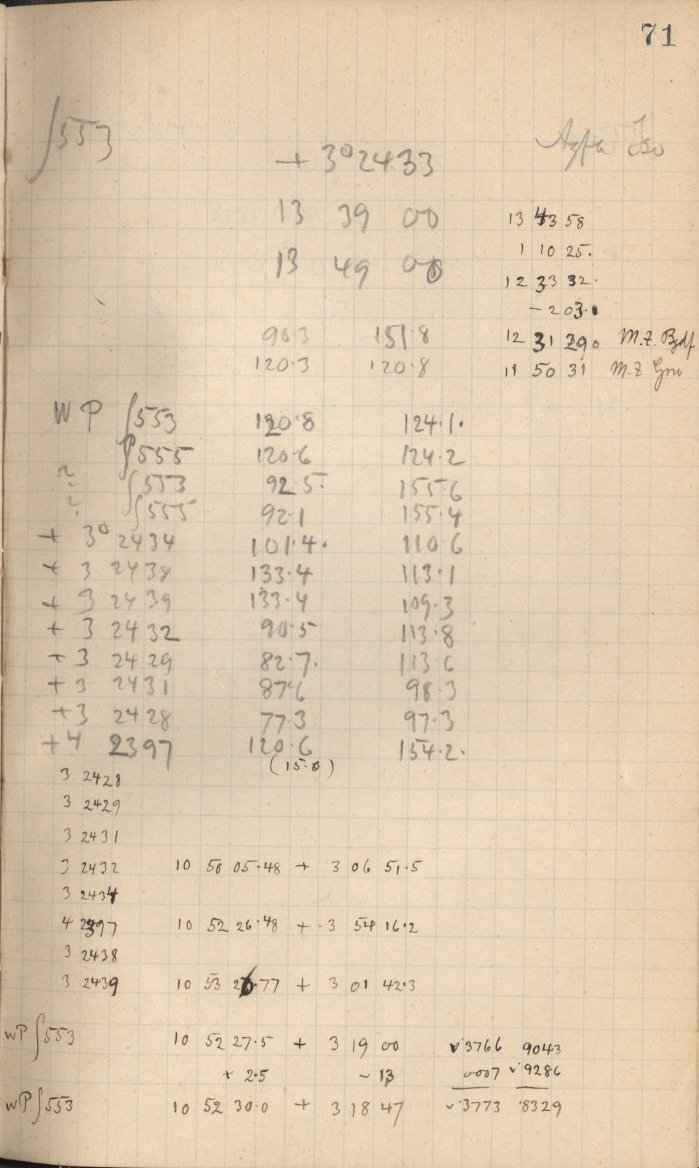 71
∫553 Agfa Iso
+ 3° 2433
13 39 00
13 49 00
13 43 58
1 10 25.
12 33 32.
- 203.0
12 31 290 M.Z. Bdf
11 50 31 M.Z Grw
90.3 151.8
120.3 120.8
WP ∫553 120.8 124.1.
∫555 120.6 124.2
∫553 92.5. 155.6
∫555 92.1 155.4
+ 3° 2434 101.4. 110.6
+ 3 2438 133.4 113.1
+ 3 2439 133.4 109.3
+ 3 2432 90.5 113.8
+ 3 2429 82.7. 113.6
+ 3 2431 87.6 98.3
+3 2428 77.3 97.3
+4 2397 120.6 154.2.
(15.0)
3 2428
3 2429
3 2431
3 2432 10 50 05.48 + 3 06 51.5
3 2434
4 2397 10 52 26.48 + 3 54 16.2
3 2438
3 2439 10 53 26.77 + 3 01 42.3
WP ∫553 10 52 27.5 + 3 19 00 v.3766 9043
+ 2.5 - 13 0007 v.9286
WP ∫553 10 52 30.0 + 3 18 47 v.3773 .8329